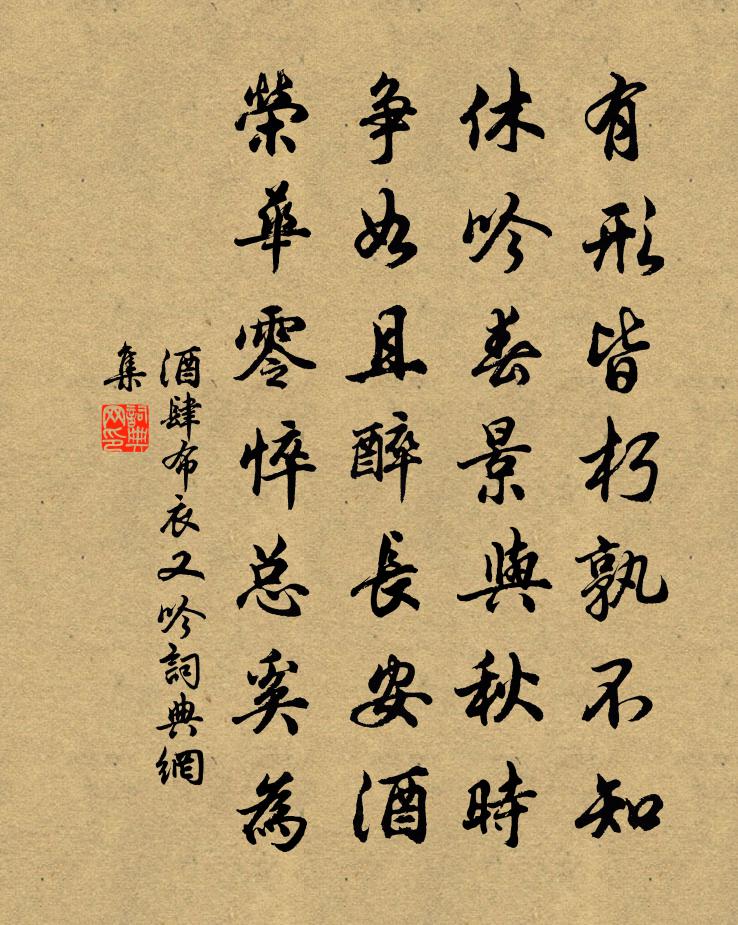 有形皆朽孰不知
休吟春景與秋時
争如且醉長安酒
榮華零悴总奚為
酒肆布衣又吟詞典網
集
詞典
网印